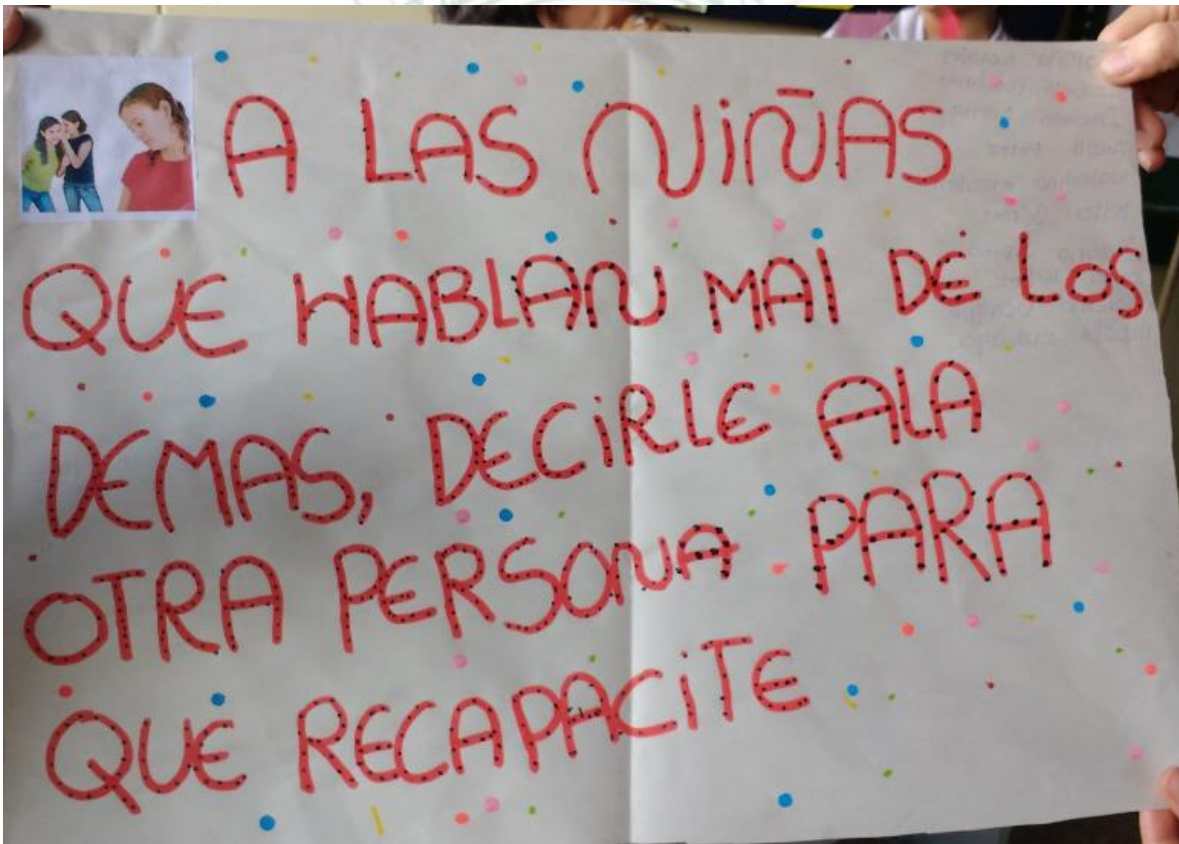 A LAS NIÑAS
QUE HABLAN MAl DE LOS
DEMAS, DECIRLE ALA
OTRA PERSONA PARA
QUE RECAPACITE